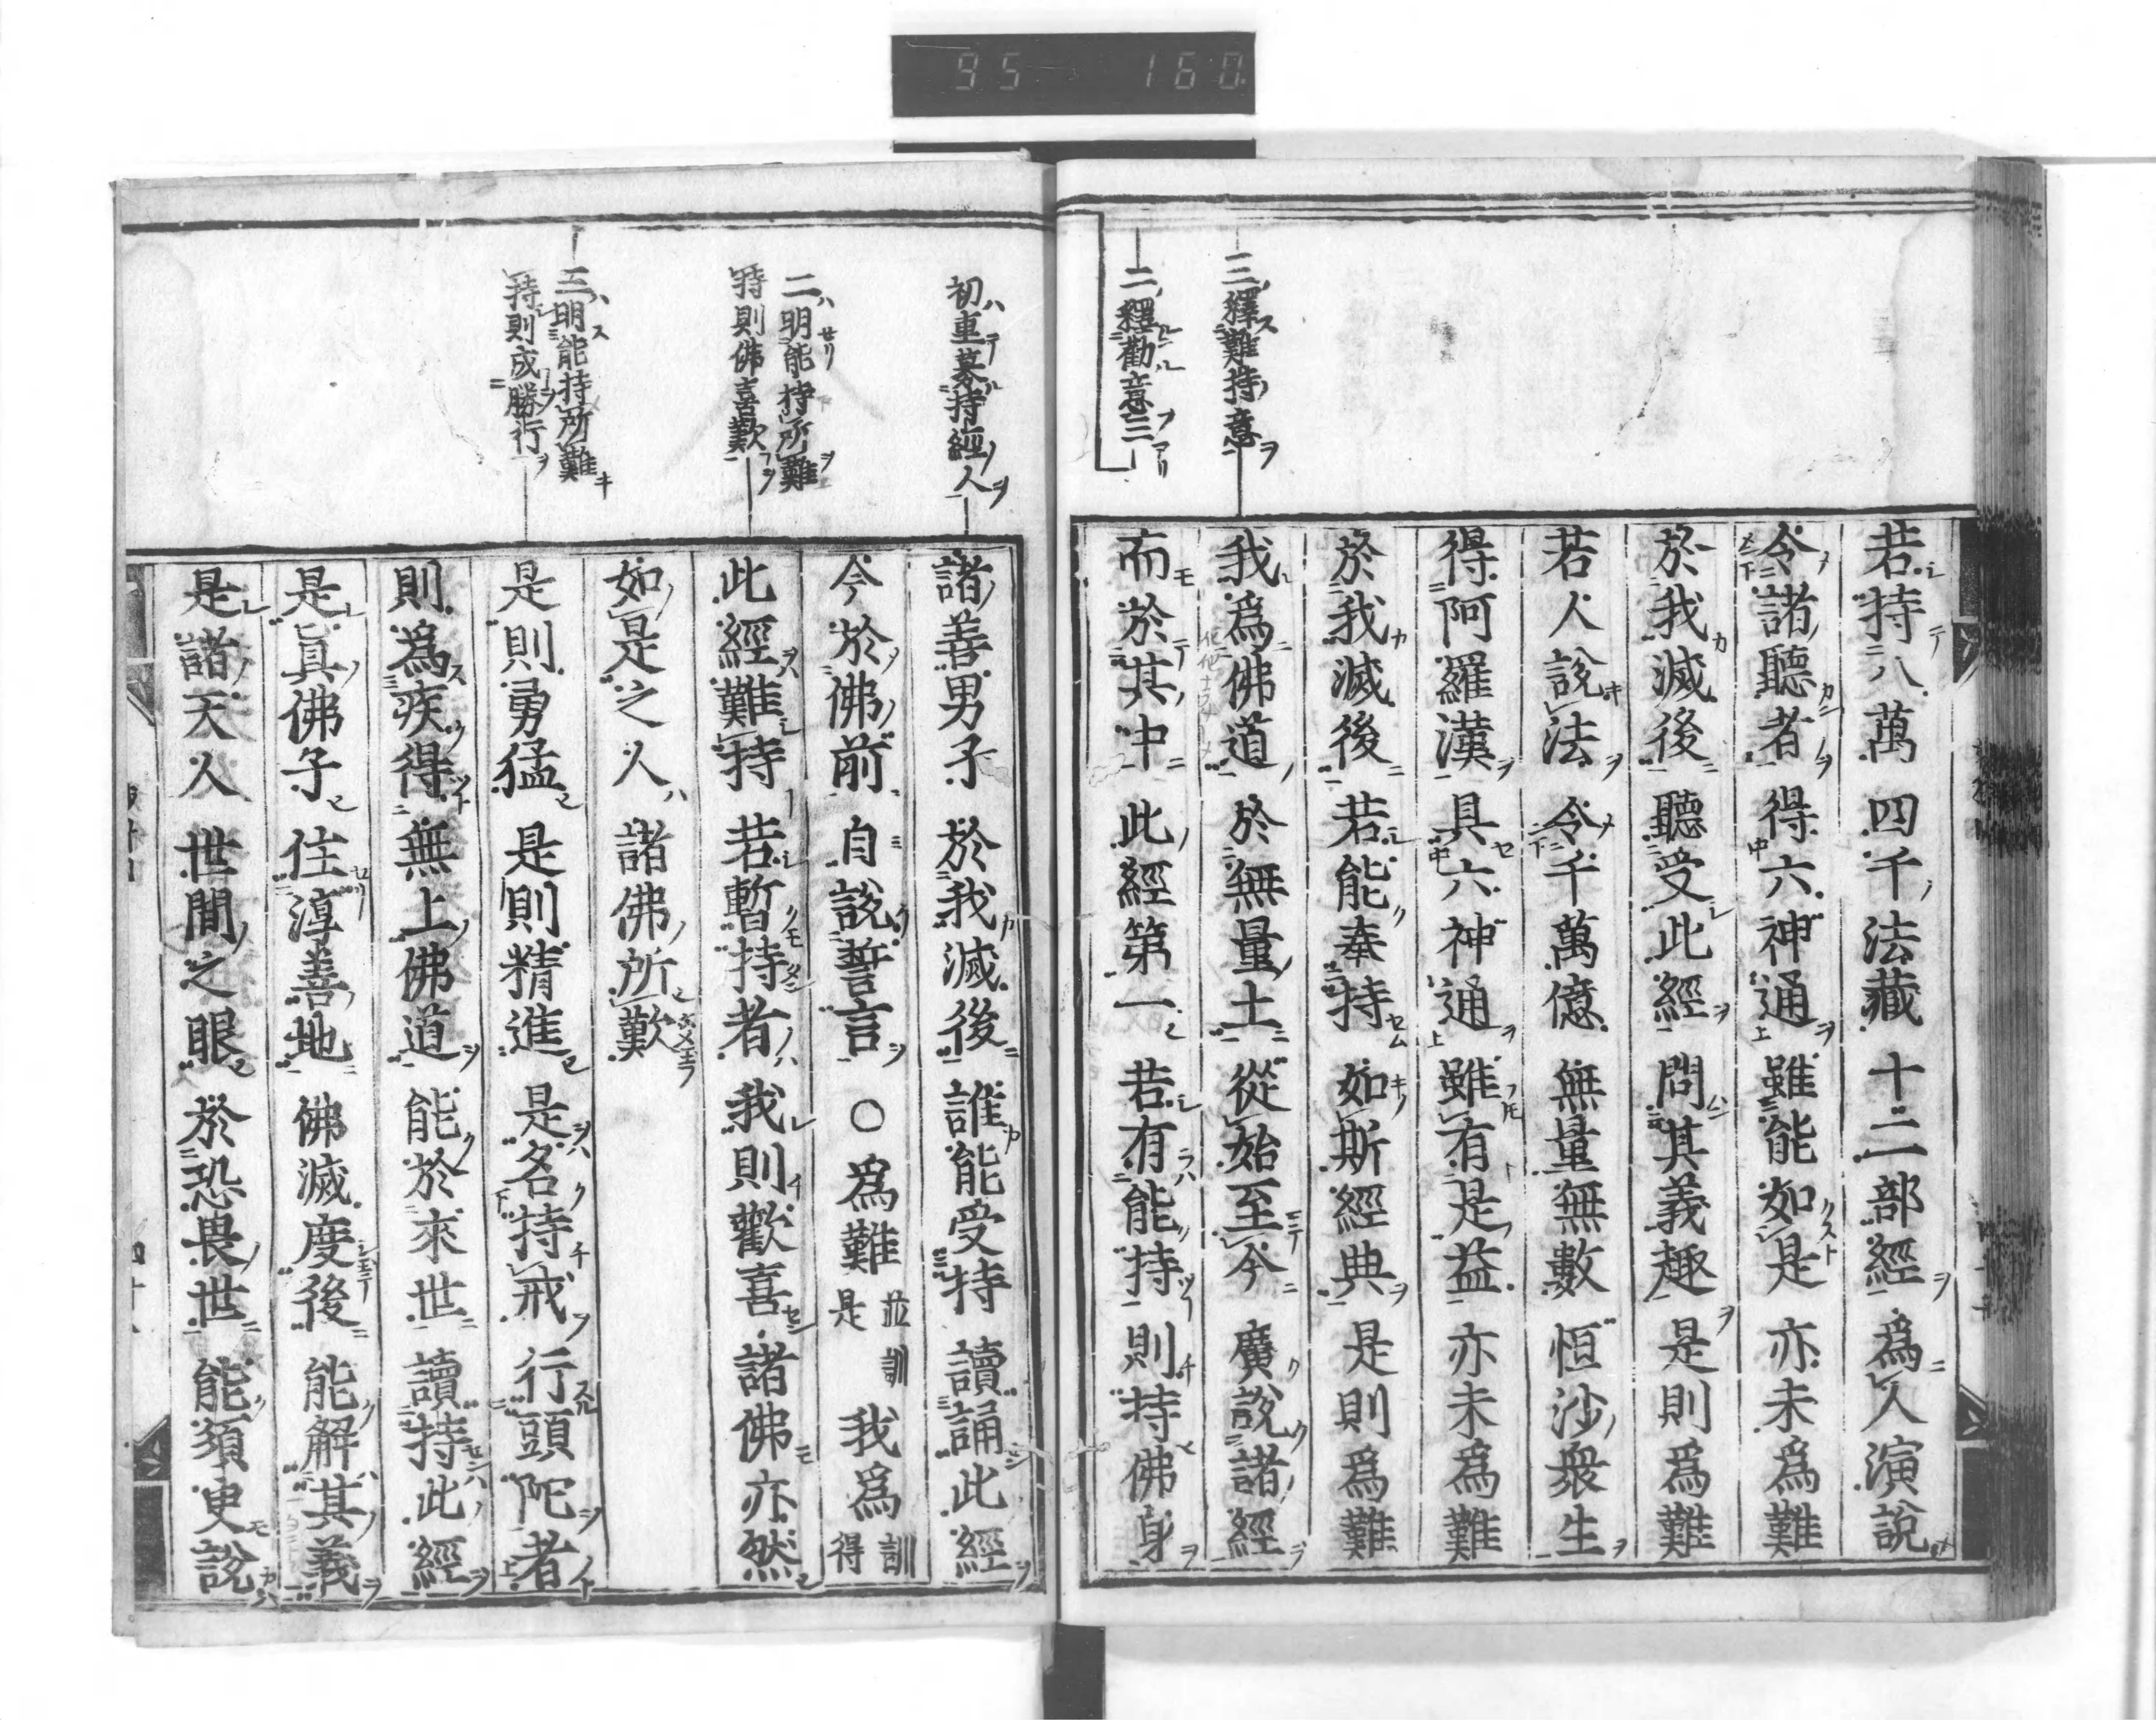 95 160
三釋難持意
二釋勸意三
若持八萬 四千法藏 十二部經 爲人演說
令諸聽者 得六神通 雖能如是 亦未爲難
於我滅後 聽受此經 問其義趣 是則爲難
若人說法 令千萬億 無量無數 恒沙衆生
得阿羅漢 具六神通 雖有是益 亦未爲難
於我滅後 若能奉持 如斯經典 是則爲難
我爲佛道 於無量土 從始至今 廣說諸經
而於其中 此經第一 若有能持 則持佛身
初重募持經人
二明能持所難
持則佛喜歎
三明能持所難
持則成勝行
諸善男子 於我滅後 誰能受持 讀誦此經
今於佛前 自說誓言 ○爲難並訓是 我爲訓得
此經難持 若暫持者 我則歡喜 諸佛亦然
如是之人 諸佛所歎
是則勇猛 是則精進 是名持戒 行頭陀者
則爲疾得 無上佛道 能於來世 讀持此經
是眞佛子 住淳善地 佛滅度後 能解其義
是諸天人 世間之眼 於恐畏世 能須臾說